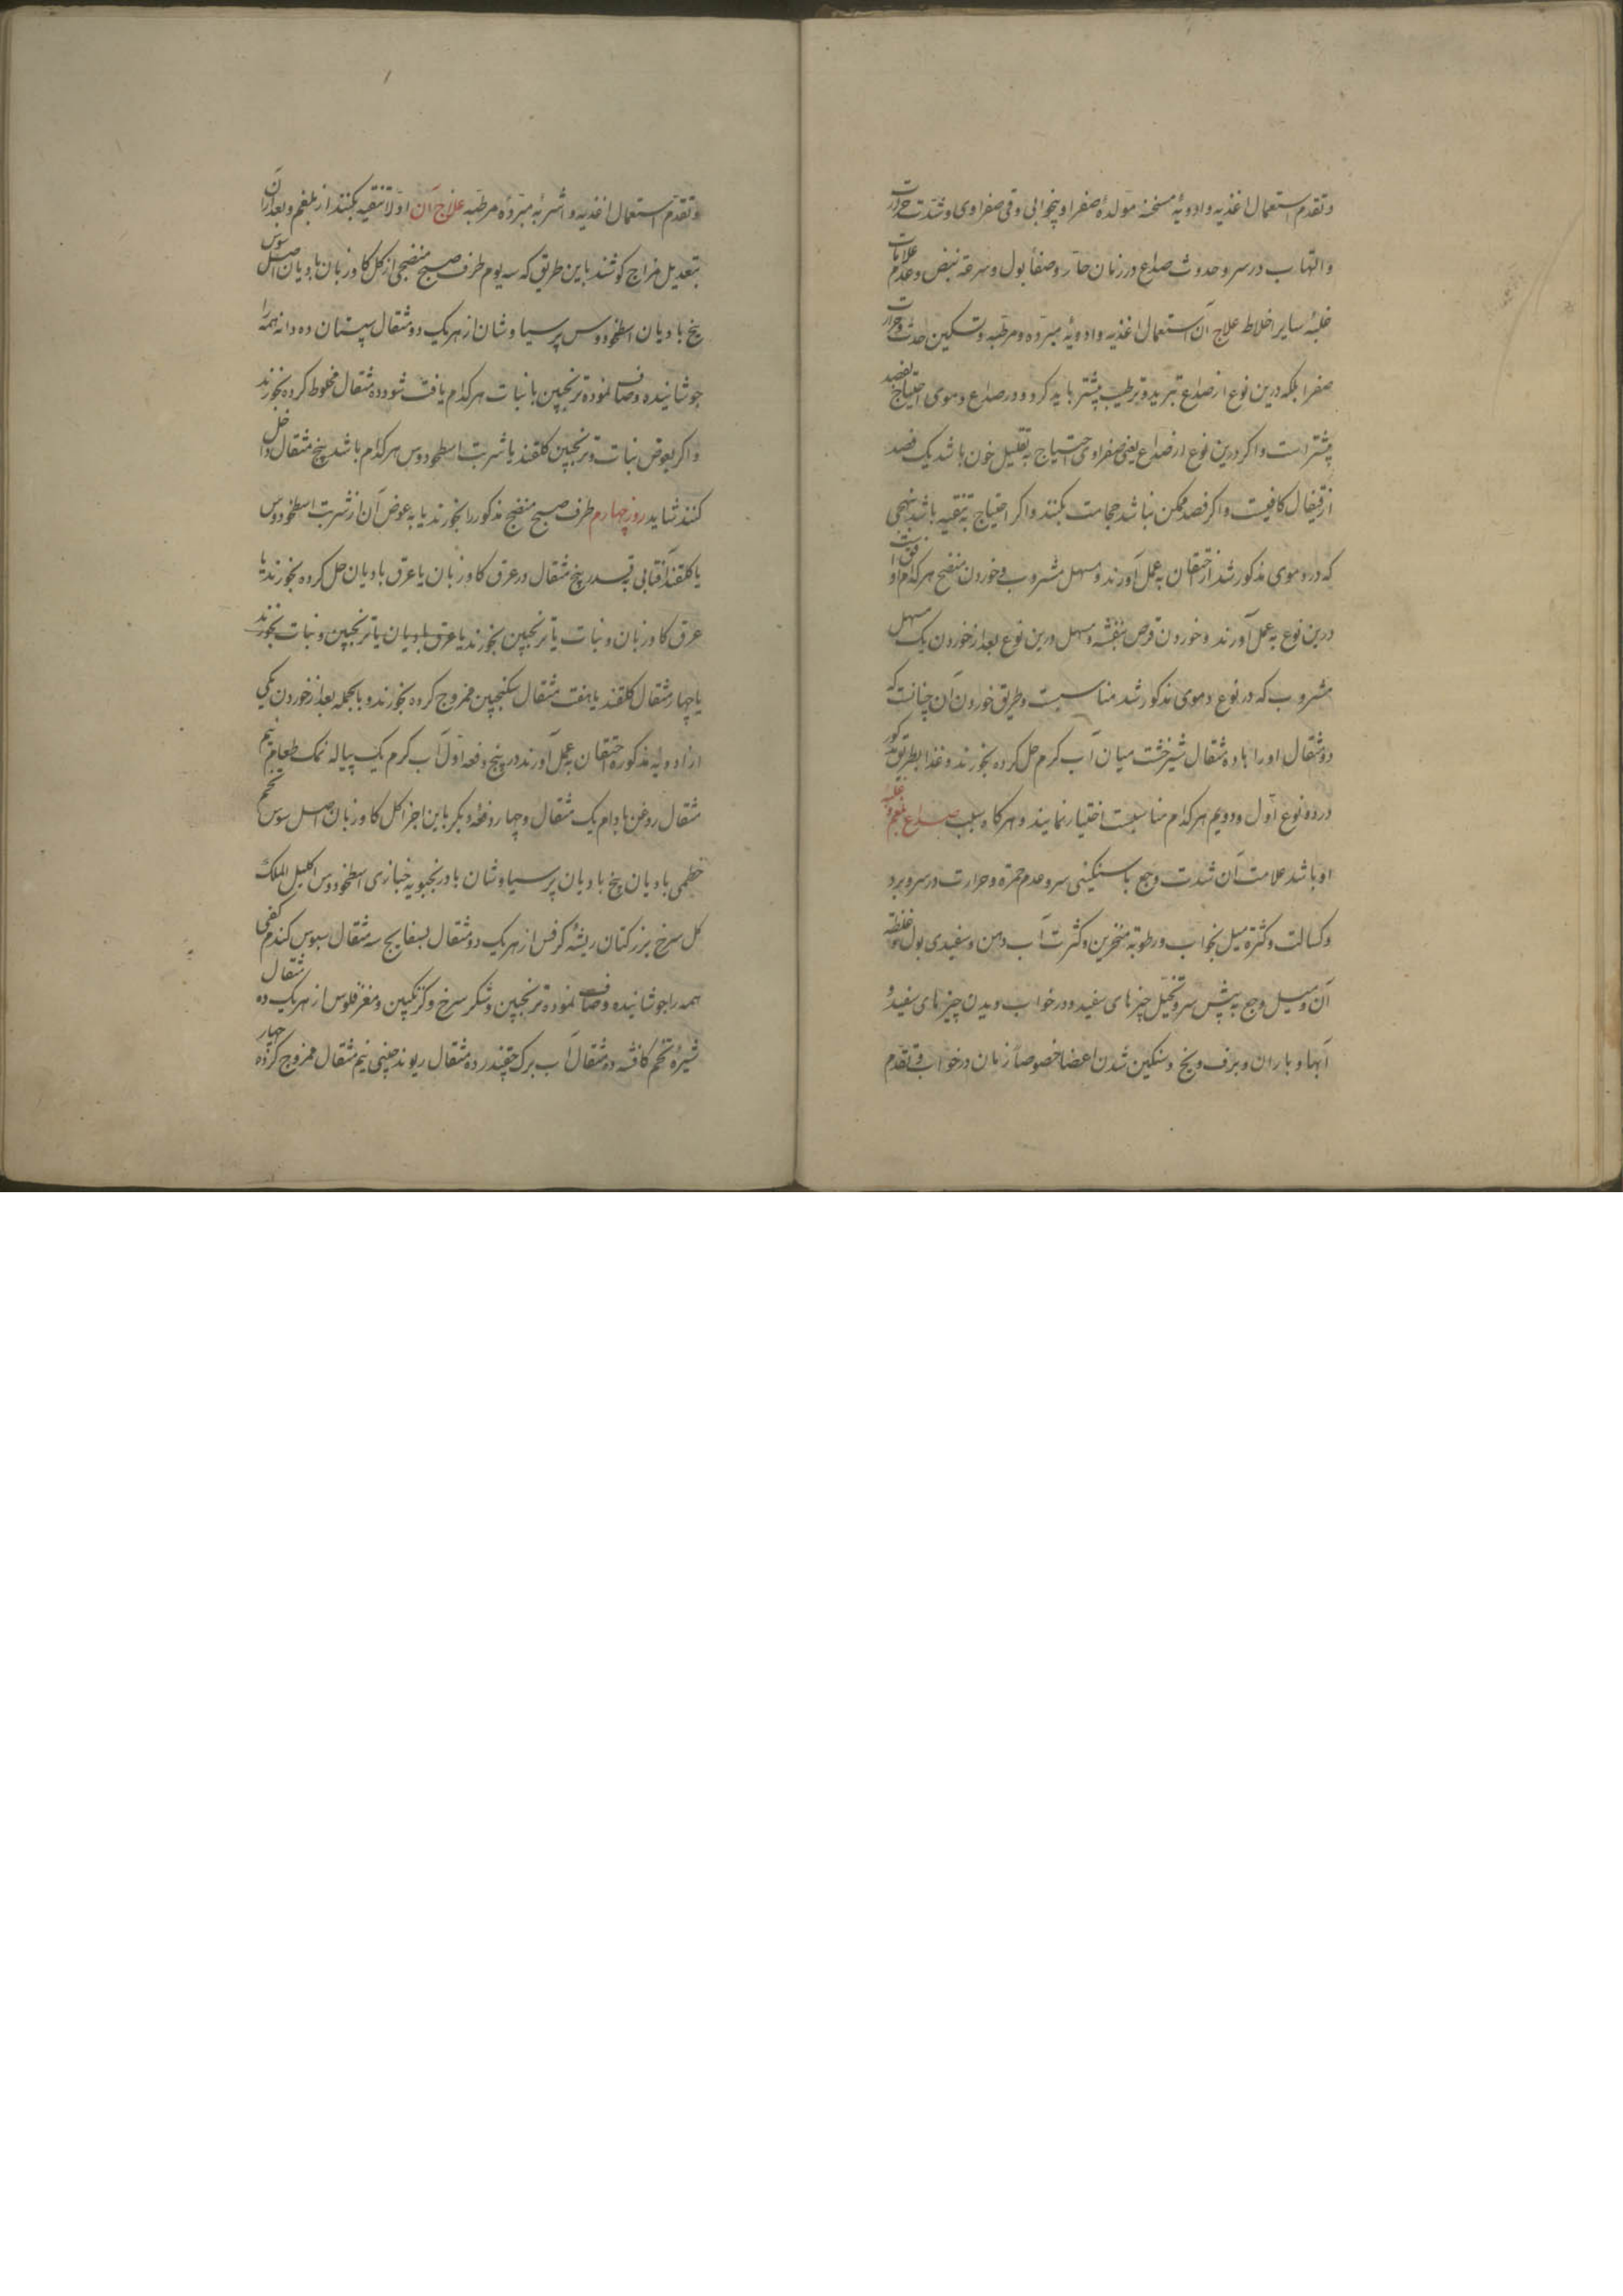 و تقدم استعمال اغذیه و ادویهٔ مسخنه مولدهٔ صفرا و بیخوابی و قی صفراوی و شدت حرارت
و التهاب در سر و حدوث صداع در زمان حار و صفاء بول و سرعة نبض و عدم علامات
غلبهٔ سایر اخلاط علاج آن استعمال اغذیه و ادویهٔ مبرده و مرطبه و تسکین حدت و حرارت
صفرا بلکه درین نوع از صداع تبرید و ترطیب بیشتر باید کرد و در صداع دموی احتیاج بفصد
بیشتر است و اکر درین نوع از صداع یعنی صفراوی احتیاج به تقلیل خون باشد یک فصد
از قیفال کافیست و اکر فصد ممکن نباشد حجامت بکنند و اکر احتیاج به تنقیه باشد بنهجی
که در دموی مذکور شد از احتقان به عمل آورند و مسهل مشروب و خوردن منضج هر کدام اوفق است
درین نوع به عمل آورند و خوردن قرص بنفشه و مسهل درین نوع بعد از خوردن یک مسهل
مشروب که در نوع دموی مذکور شد مناسبست و طریق خوردن آن چنانست که
دو مثقال او را با ده مثقال شیرخشت میان آب کرم حل کرده بخورند و غذا بطریق مذکور
در دو نوع اول و دویم هر کدام مناسبست اختیار نمایند و هر کاه سبب صداع بلغم و غلبه
او باشد علامت آن شدت وجع با سنکینی سر و عدم حمرة و حرارت در سر و برد
و کسالت و کثرة میل بخواب و رطوبة منخرین و کثرت آب دهن و سفیدی بول و غلظة
آن و میل وجع به پیش سر و تخیل چیزهای سفید و در خواب دیدن چیزهای سفید و
آبها و باران و برف و یخ و سنکین شدن اعضا خصوصاً زبان در خواب و تقدم
و تقدم استعمال اغذیه و اشربهٔ مبرده مرطبه علاج آن اولا تنقیه بکنند از بلغم و بعد از آن
بتعدیل مزاج کوشند باین طریق که سه یوم طرف صبح منضجی از کل کاوزبان بادیان اصل سوس
بیخ بادیان اسطوخودوس پرسیاوشان از هر یک دو مثقال سپستان ده دانه همه را
جوشانیده و صاف نموده ترنجبین یا نبات هر کدام یافت شود ده مثقال مخلوط کرده بخورند
و اکر بعوض نبات و ترنجبین کلقند یا شربت اسطوخودوس هر کدام باشد پنج مثقال داخل
کنند شاید روز چهارم طرف صبح منضج مذکور را بخورند یا به عوض آن از شربت اسطوخودوس
یا کلقند آفتابی بقدر پنج مثقال در عرق کاوزبان یا عرق بادیان حل کرده بخورند یا
عرق کاوزبان و نبات یا ترنجبین بخورند یا عرق بادیان یا ترنجبین و نبات بخورند
یا چهار مثقال کلقند یا هفت مثقال سکنجبین ممزوج کرده بخورند و بالجمله بعد از خوردن یکی
از ادویهٔ مذکوره احتقان به عمل آورند در پنج دفعه اول آب کرم یک پیاله نمک طعام نیم
مثقال روغن بادام یک مثقال و چهار دفعهٔ دیکر باین اجزا کل کاوزبان اصل سوس تخم
خطمی بادیان بیخ بادیان پرسیاوشان بادرنجبویه خبازی اسطوخودوس اکلیل الملک
کل سرخ بزرکتان ریشهٔ کرفس از هر یک دو مثقال بسفایج سه مثقال سبوس کندم کفی
همه را جوشانیده و صاف نموده ترنجبین و شکر سرخ و کزنکبین و مغز فلوس از هر یک ده مثقال
شیرهٔ تخم کافشه دو مثقال آب برک چقندر ده مثقال ریوند چینی نیم مثقال ممزوج کرده چهار